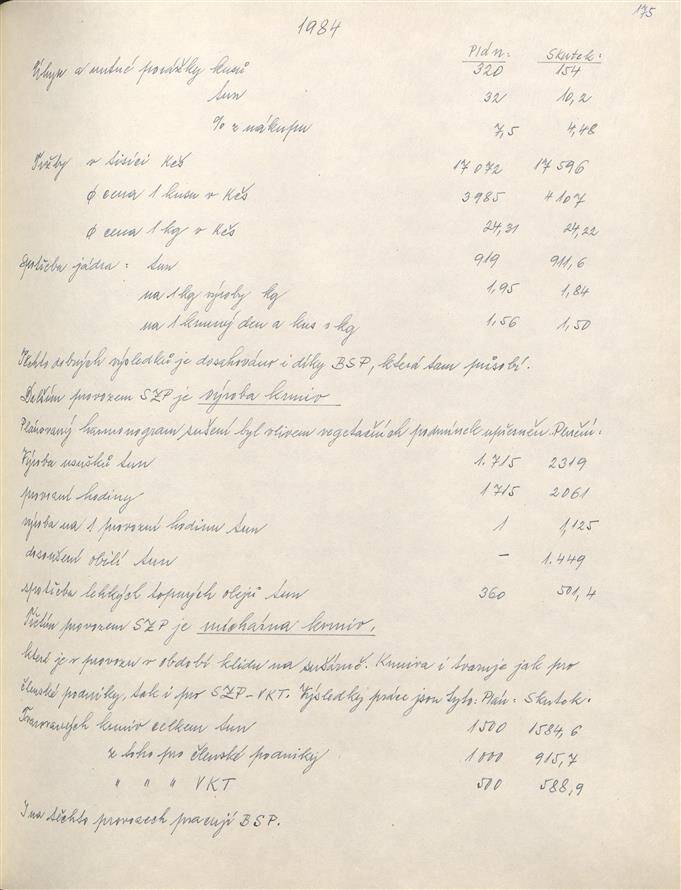 175
1984
Plán: Skutek:
Úhyn a nutné porážky kusů 320 154
tun 32 10,2
% z nákupu 7,5 4,48
Tržby v tisíci Kčs 17 072 17 596
ϕ cena 1 kusu v Kčs 3985 4107
ϕ cena 1 kg v Kčs 24,31 24,22
Spotřeba jádra: tun 919 911,6
na 1 kg výroby kg 1,95 1,84
na 1 krmný den a kus v kg 1,56 1,50
Těchto dobrých výsledků je dosahováno i díky BSP, která tam působí.
Dalším provozem SZP je výroba krmiv
Plánovaný harmonogram sušení byl vlivem vegetačních podmínek upřesněn. Plnění:
Výroba úsušků tun 1.715 2319
provozní hodiny 1715 2061
výroba na 1 provozní hodinu tun 1 1,125
dosoušení obilí tun – 1.449
spotřeba lehkých topných olejů tun 360 501,4
provozem SZP je míchárna krmiv,
která je v provozu v období klidu na sušárně. Krmiva i tvaruje jak pro
členské podniky, tak i pro SZP-VKT. Výsledky práce jsou tyto: Plán: Skutek:
Tvarovaných krmiv celkem tun 1500 1584,6
z toho pro členské podniky 1000 915,7
" " " VKT 500 588,9
I na těchto provozech pracují BSP.